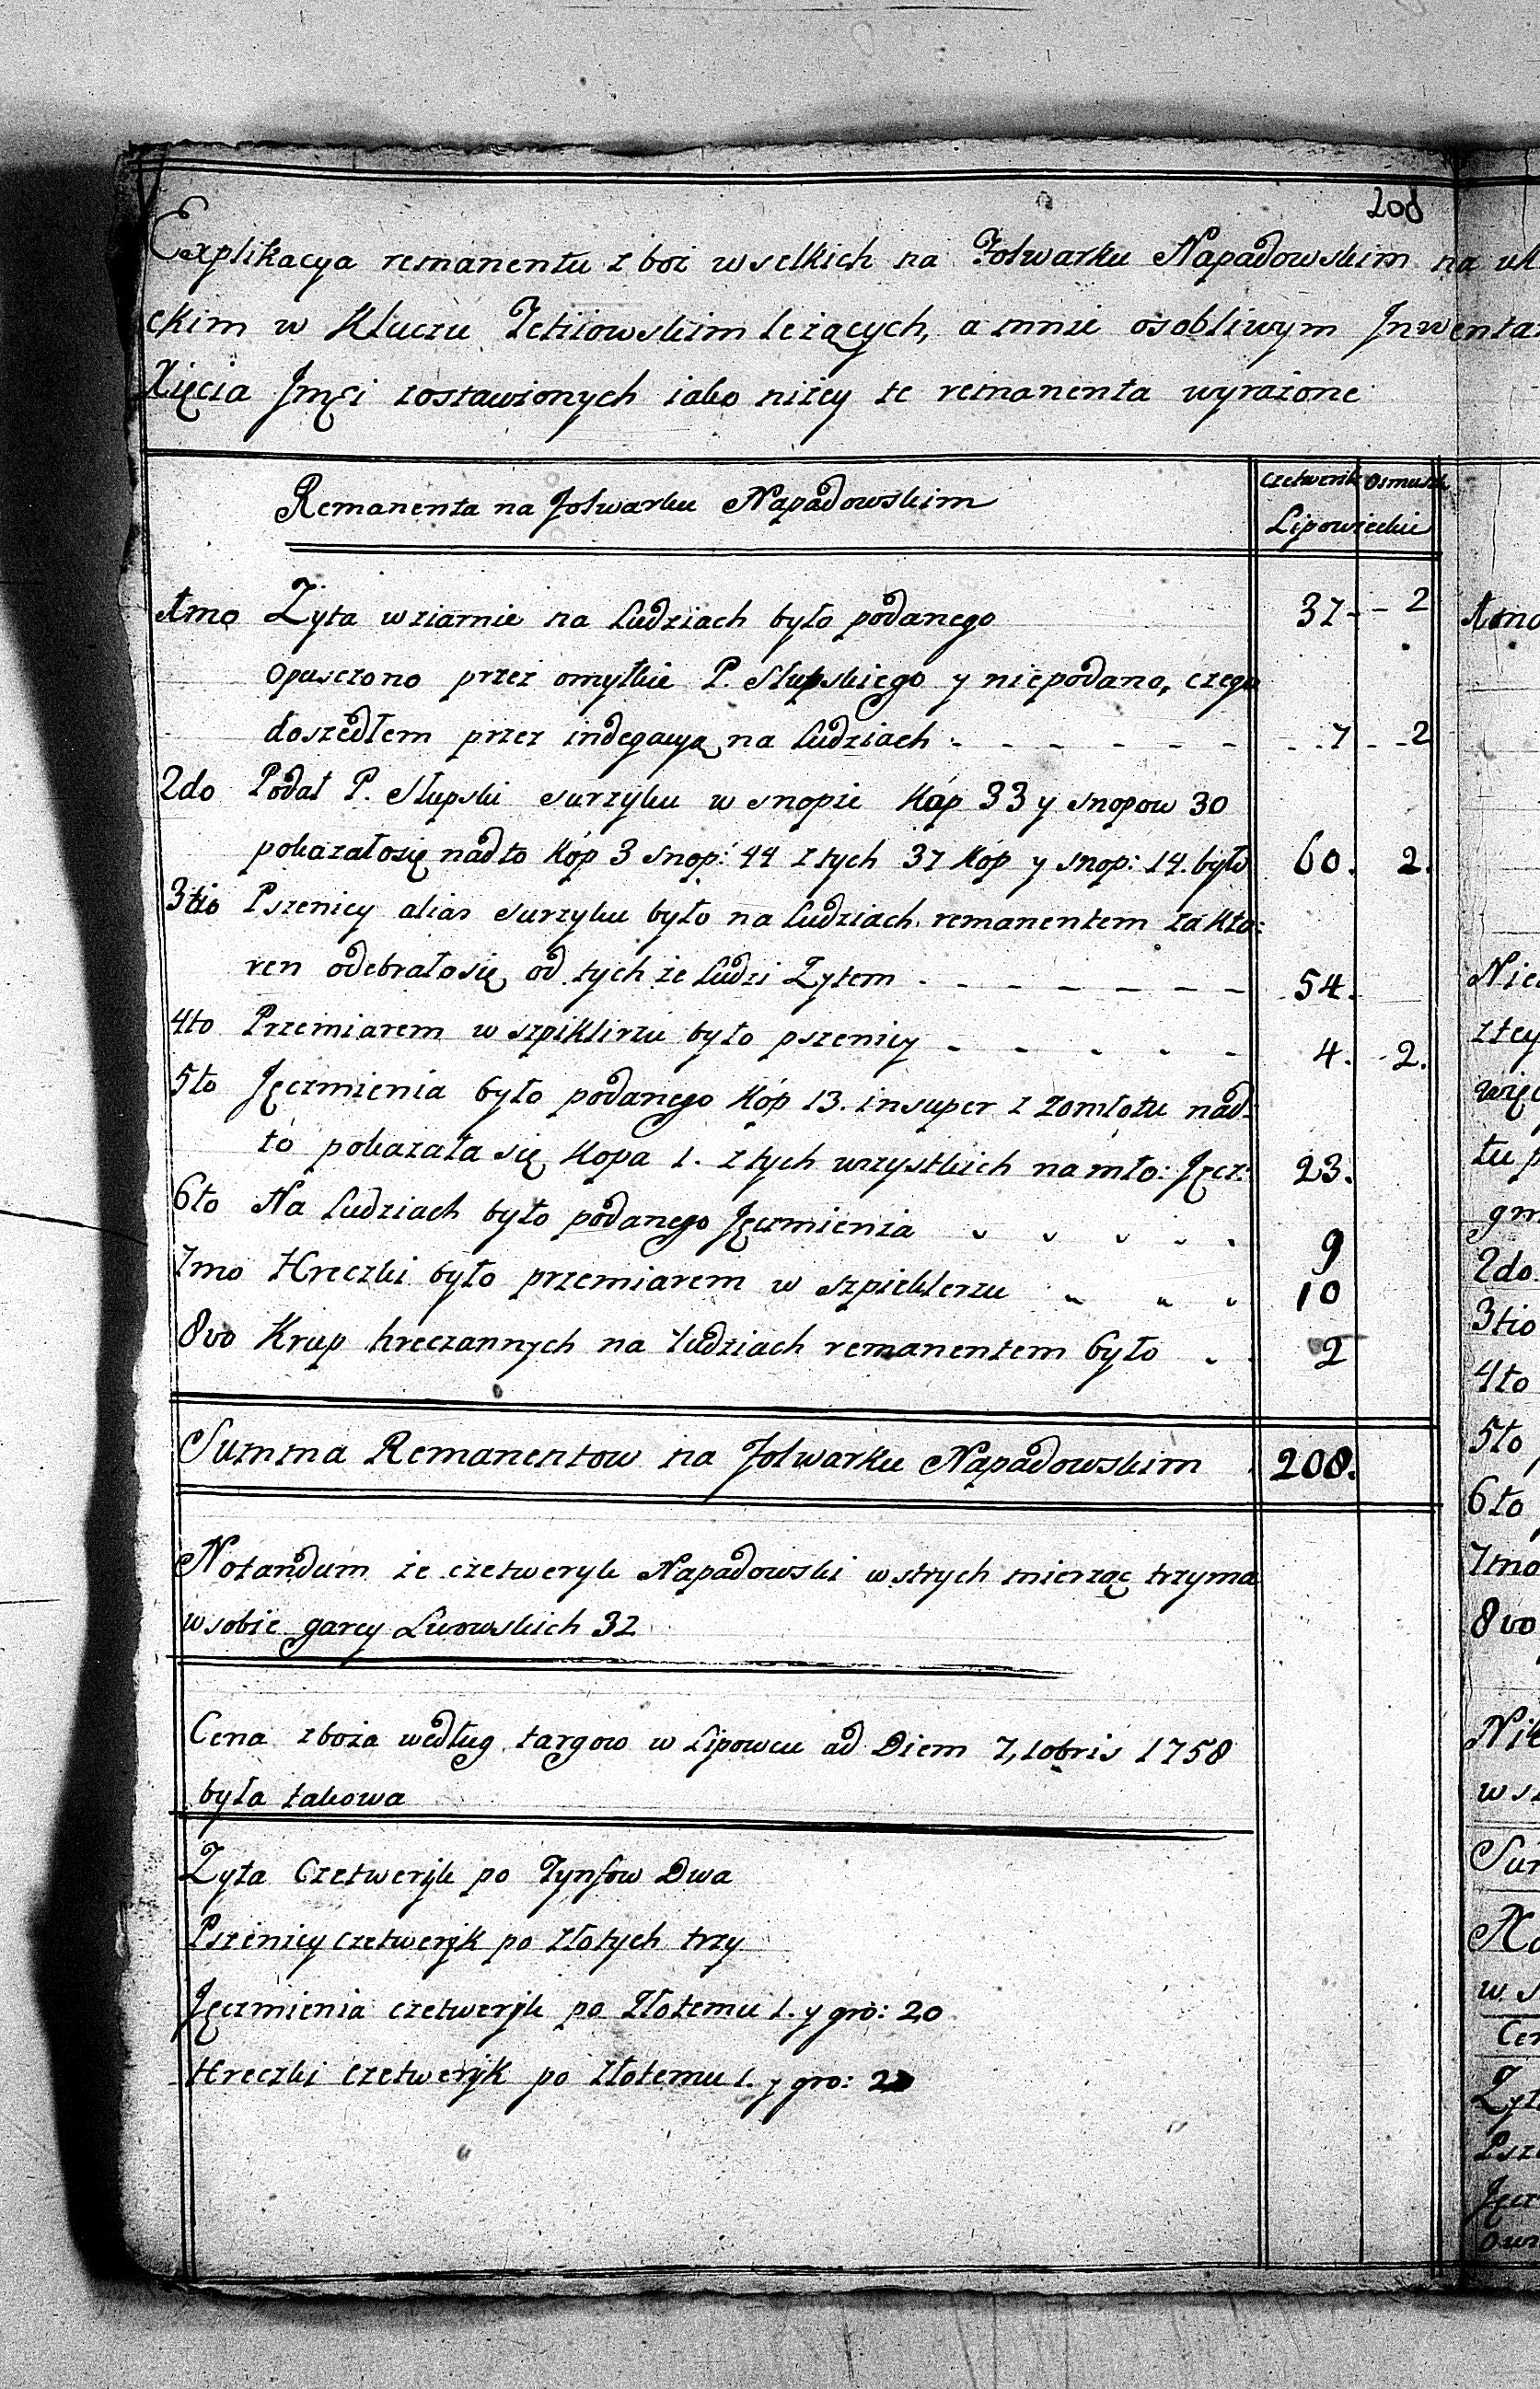 208
Explikacya remanentu zboz wselkich na Folwarku Napadowskim na
ckim w Kluczu Tetiiowskim leżących, a mnie osobliwym Inwenta
Xięcia Jmći zostawionych iako niżey te remanenta wyrażone
Remanenta na folwarku Napadowskim
czetweryk Osmuszk
Lipowieckie
1mo Zyta wziarnie na Ludziach było podanego 37 - - 2
opusczono przez omyłkie P. Słupskiego y niepodano, czego
doszedłem przez indegacyą na Ludziach - - - - - - - 7 - - 2
2do Podał P. Słupski surzyku w snopie Kóp 33 y snopow 30
pokazałosię nadto Kóp 3 snop: 44 z tych 37 Kóp y snop: 14. było 60. 2.
3tio Pszenicy alias surzyku było na Ludziach remanentem za kto:
ren odebrałosię od tych że Ludzi Zytem - - - - - - - 54.
4to Przemiarem w szpiklirzu było pszenicy - - - - - 4. - 2.
5to Jęczmienia było podanego Kóp 13. insuper z zomłotu nad:
to pokazała się Kopa 1. z tych wszystkich namło: Jęcz: 23.
6to Na Ludziach było podanego Jęczmienia 9
7mo Hreczki było przemiarem w szpiklerzu 10
8vo Krup hreczannych na ludziach remanentem było 2
Summa Remanentow na folwarku Napadowskim 208.
Notandum że czetweryk Napadowski wstrych mierząc trzyma
wsobie garcy Lwowskich 32
Cena zboża według targow w Lipowcu ad Diem 7, 10bris 1758
była takowa
Zyta Czetweryk po Tynfow Dwa
Pszenicy czetweryk po złotych trzy
Jęczmienia czetweryk po Złotemu 1. y gro: 20
Hreczki czetweryk po złotemu 1. y gro:
1mo
2do
3tio
4to
5to
6to
7mo
8vo